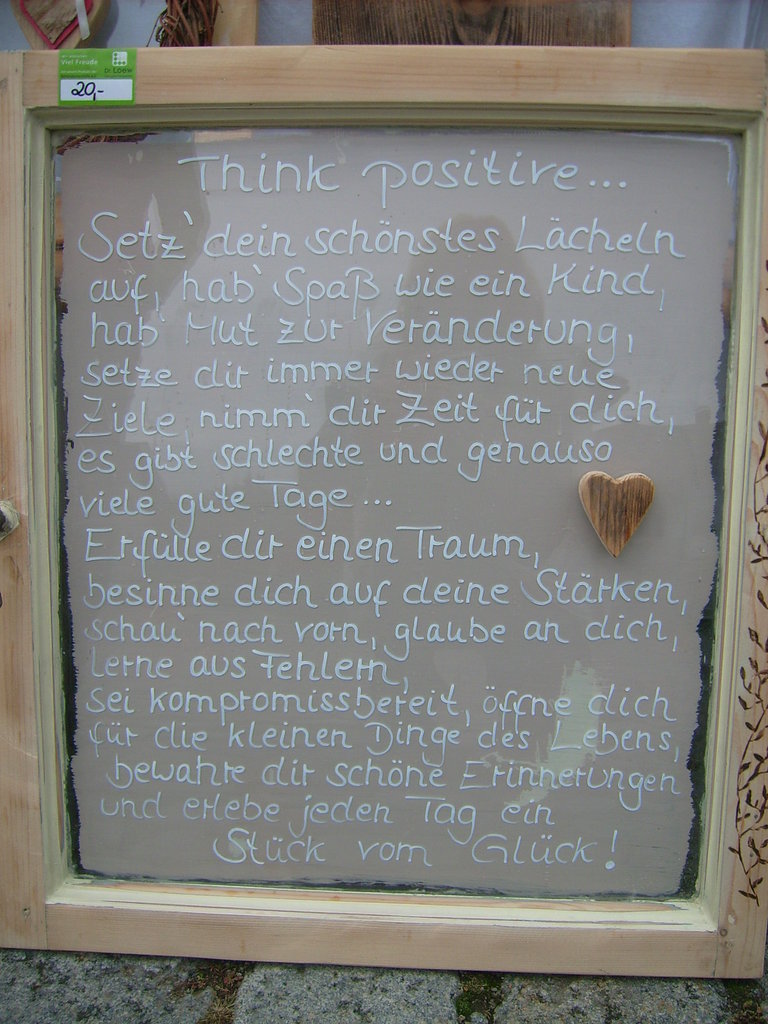 Viel Freude
20,-
Think positive...
Setz' dein schönstes Lächeln
auf, hab' Spaß wie ein Kind,
hab' Mut zur Veränderung,
setze dir immer wieder neue
Ziele, nimm' dir Zeit für dich,
es gibt schlechte und genauso
viele gute Tage ...
Erfülle dir einen Traum,
besinne dich auf deine Stärken,
schau' nach vorn, glaube an dich,
lerne aus Fehlern,
sei kompromissbereit, öffne dich
für die kleinen Dinge des Lebens,
bewahre dir schöne Erinnerungen
und erlebe jeden Tag ein
Stück vom Glück!